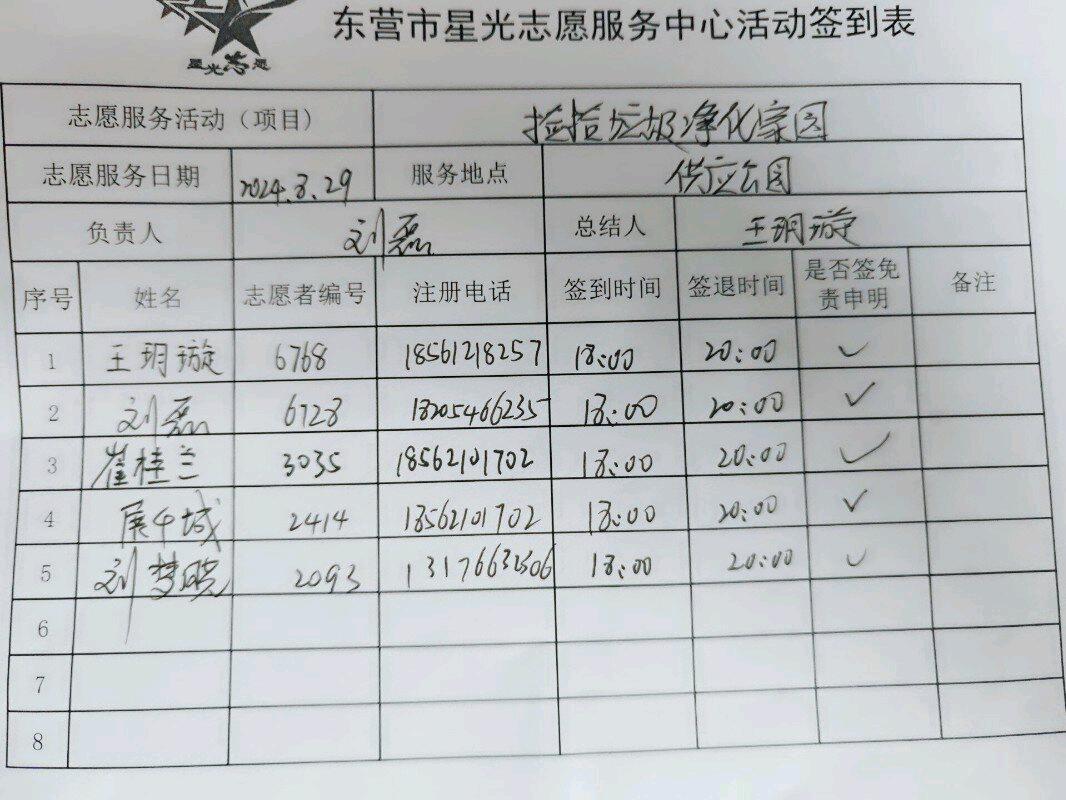 星光志愿
东营市星光志愿服务中心活动签到表
志愿服务活动（项目） 捡拾垃圾净化家园
志愿服务日期 2024.8.29 服务地点 供应公园
负责人 刘磊 总结人 王玥璇
序号 姓名 志愿者编号 注册电话 签到时间 签退时间 是否签免责申明 备注
1 王玥璇 6768 18561218257 18:00 20:00 ✓
2 刘磊 6728 18205466235 18:00 20:00 ✓
3 崔桂兰 3035 18562101702 18:00 20:00 ✓
4 城 2414 18562101702 18:00 20:00 ✓
5 刘梦晓 2093 18:00 20:00 ✓
6
7
8